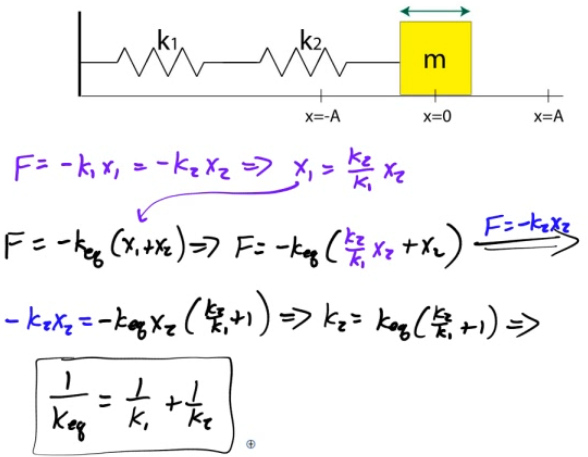 k₁ k₂ m
x=-A x=0 x=A
F = -k₁x₁ = -k₂x₂ => x₁ = k₂/k₁ x₂
F = -k_eq (x₁+x₂) => F = -k_eq (k₂/k₁ x₂ + x₂) F=-k₂x₂
-k₂x₂ = -k_eq x₂ (k₂/k₁ +1) => k₂ = k_eq (k₂/k₁ +1) =>
1/k_eq = 1/k₁ + 1/k₂